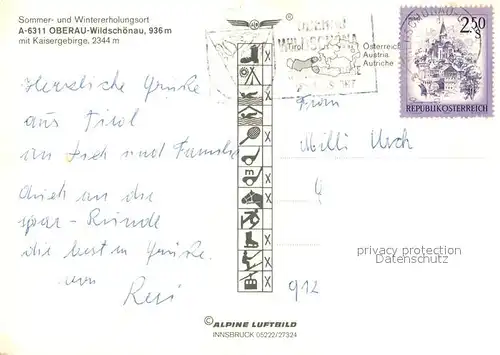 Sommer- und Wintererholungsort
A-6311 OBERAU-Wildschönau, 936 m
mit Kaisergebirge, 2344 m
®
Tirol
Österreich
Austria
Autriche
2.50
S
REPUBLIK ÖSTERREICH
Herzliche Grüße
aus Tirol
an Dich und Familie
auch an die
die besten Grüße
von
Resi
Frau
Milli
912
privacy protection
Datenschutz
© ALPINE LUFTBILD
INNSBRUCK 05222/27324